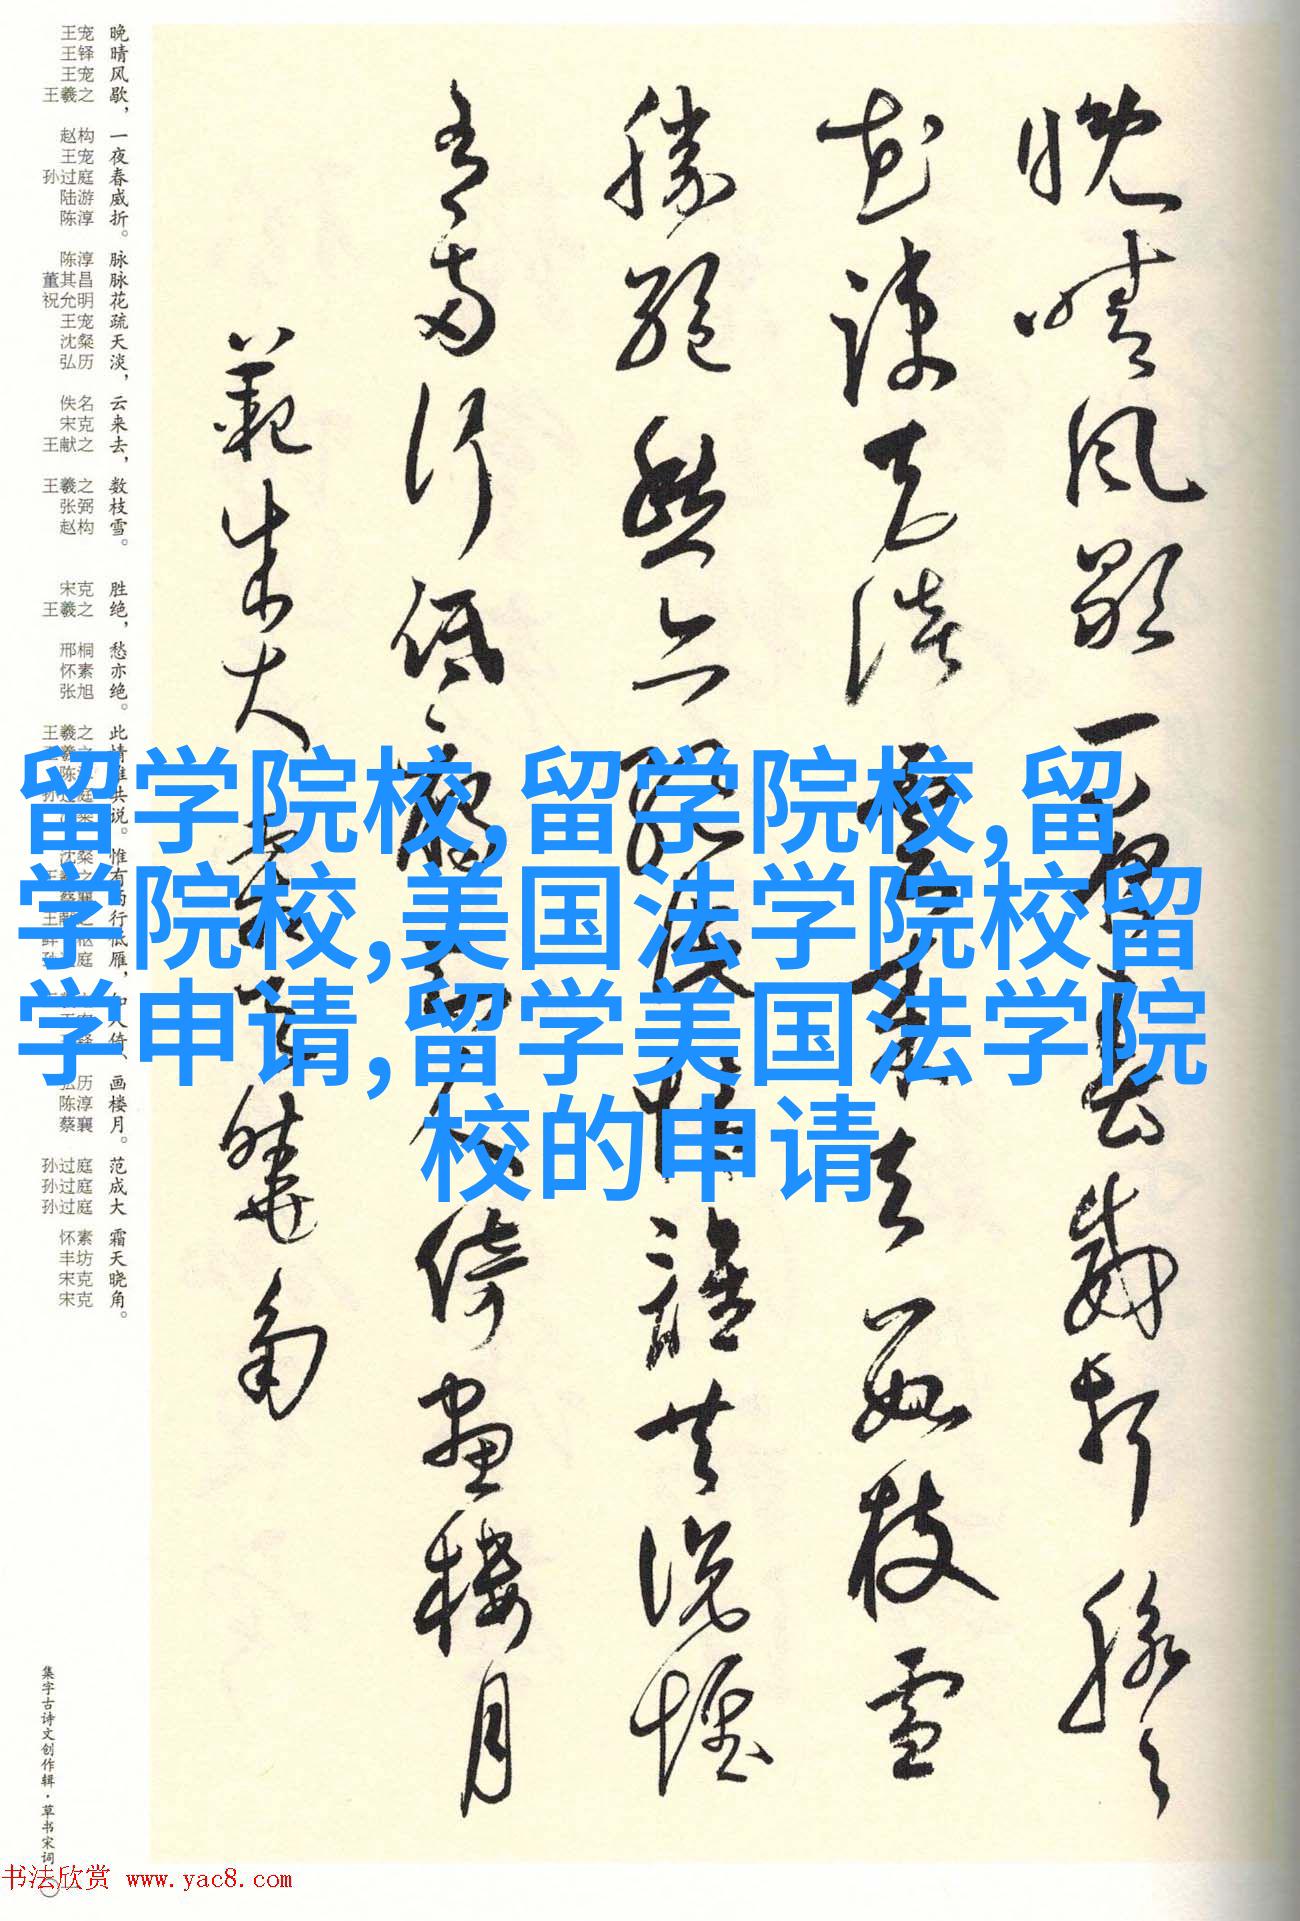 晚晴风歇一夜春威折脉々
花疎天淡雲来去数枝雪
勝絕愁亦絕此情誰共說惟
有兩行低雁知人倚畫樓月
範成大霜天曉角
留学院校,留学院校,留
学院校,美国法学院校留
学申请,留学美国法学院
校的申请
晚晴风歇，一夜春威折。脉脉花疏天淡，云来去，数枝雪。
胜绝，愁亦绝。此情谁共说。惟有两行低雁，知人倚、画楼月。
范成大 霜天晓角。
王宠 王铎 王宠 王羲之
赵构 王宠 孙过庭 陆游 陈淳
陈淳 董其昌 祝允明 王宠 沈粲 弘历
佚名 宋克 王献之
王羲之 张弼 赵构
宋克 王羲之
邢桐 怀素 张旭
王羲之
沈粲
弘历 陈淳 蔡襄
孙过庭 孙过庭 孙过庭
怀素 丰坊 宋克 宋克
集字古诗文创作辑·草书宋词
书法欣赏 www.yac8.com